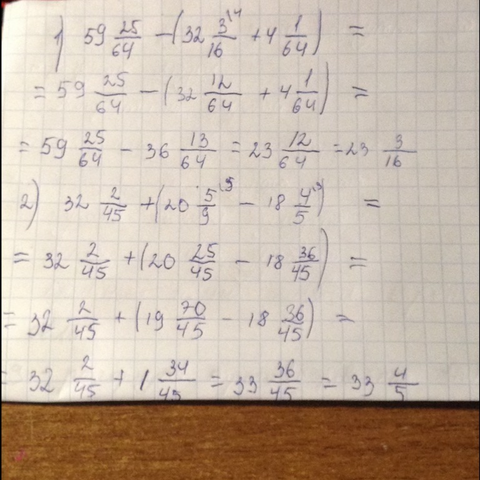 1) 59 25/64 - (32 3/16 ^(4 + 4 1/64) =
= 59 25/64 - (32 12/64 + 4 1/64) =
= 59 25/64 - 36 13/64 = 23 12/64 = 23 3/16
2) 32 2/45 + (20 5/9 ^(5 - 18 4/5 ^(9) =
= 32 2/45 + (20 25/45 - 18 36/45) =
= 32 2/45 + (19 70/45 - 18 36/45) =
= 32 2/45 + 1 34/45 = 33 36/45 = 33 4/5